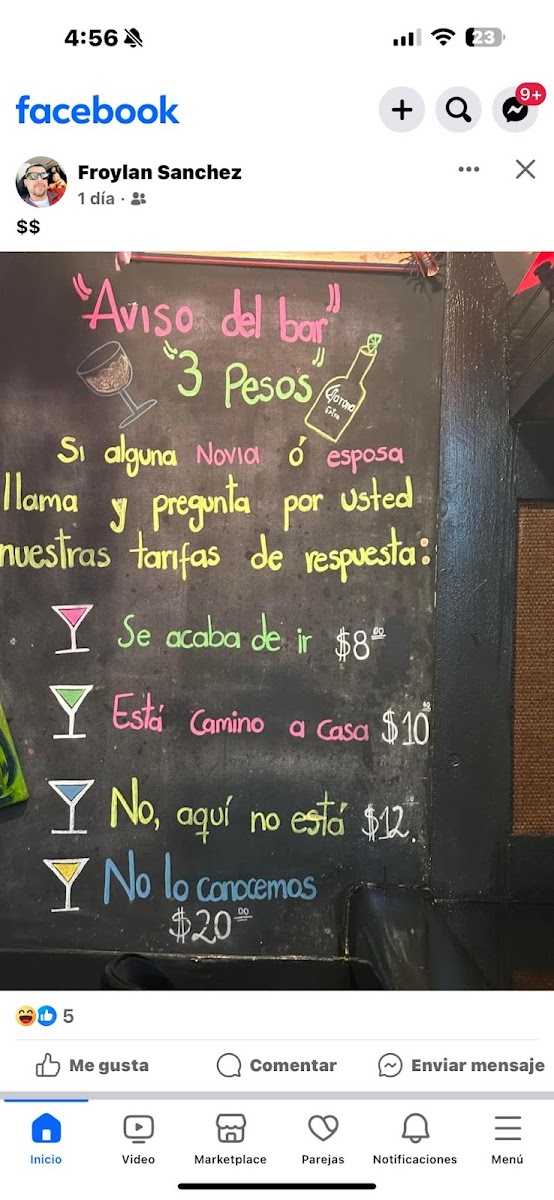 4:56
23
facebook
9+
Froylan Sanchez
1 día
$$
"Aviso del bar"
"3 Pesos"
Corona
Extra
Si alguna Novia ó esposa
llama y pregunta por usted
nuestras tarifas de respuesta:
Se acaba de ir $8.00
Está Camino a casa $10.00
No, aquí no está $12.00
No lo conocemos
$20.00
5
Me gusta
Comentar
Enviar mensaje
Inicio
Video
Marketplace
Parejas
Notificaciones
Menú